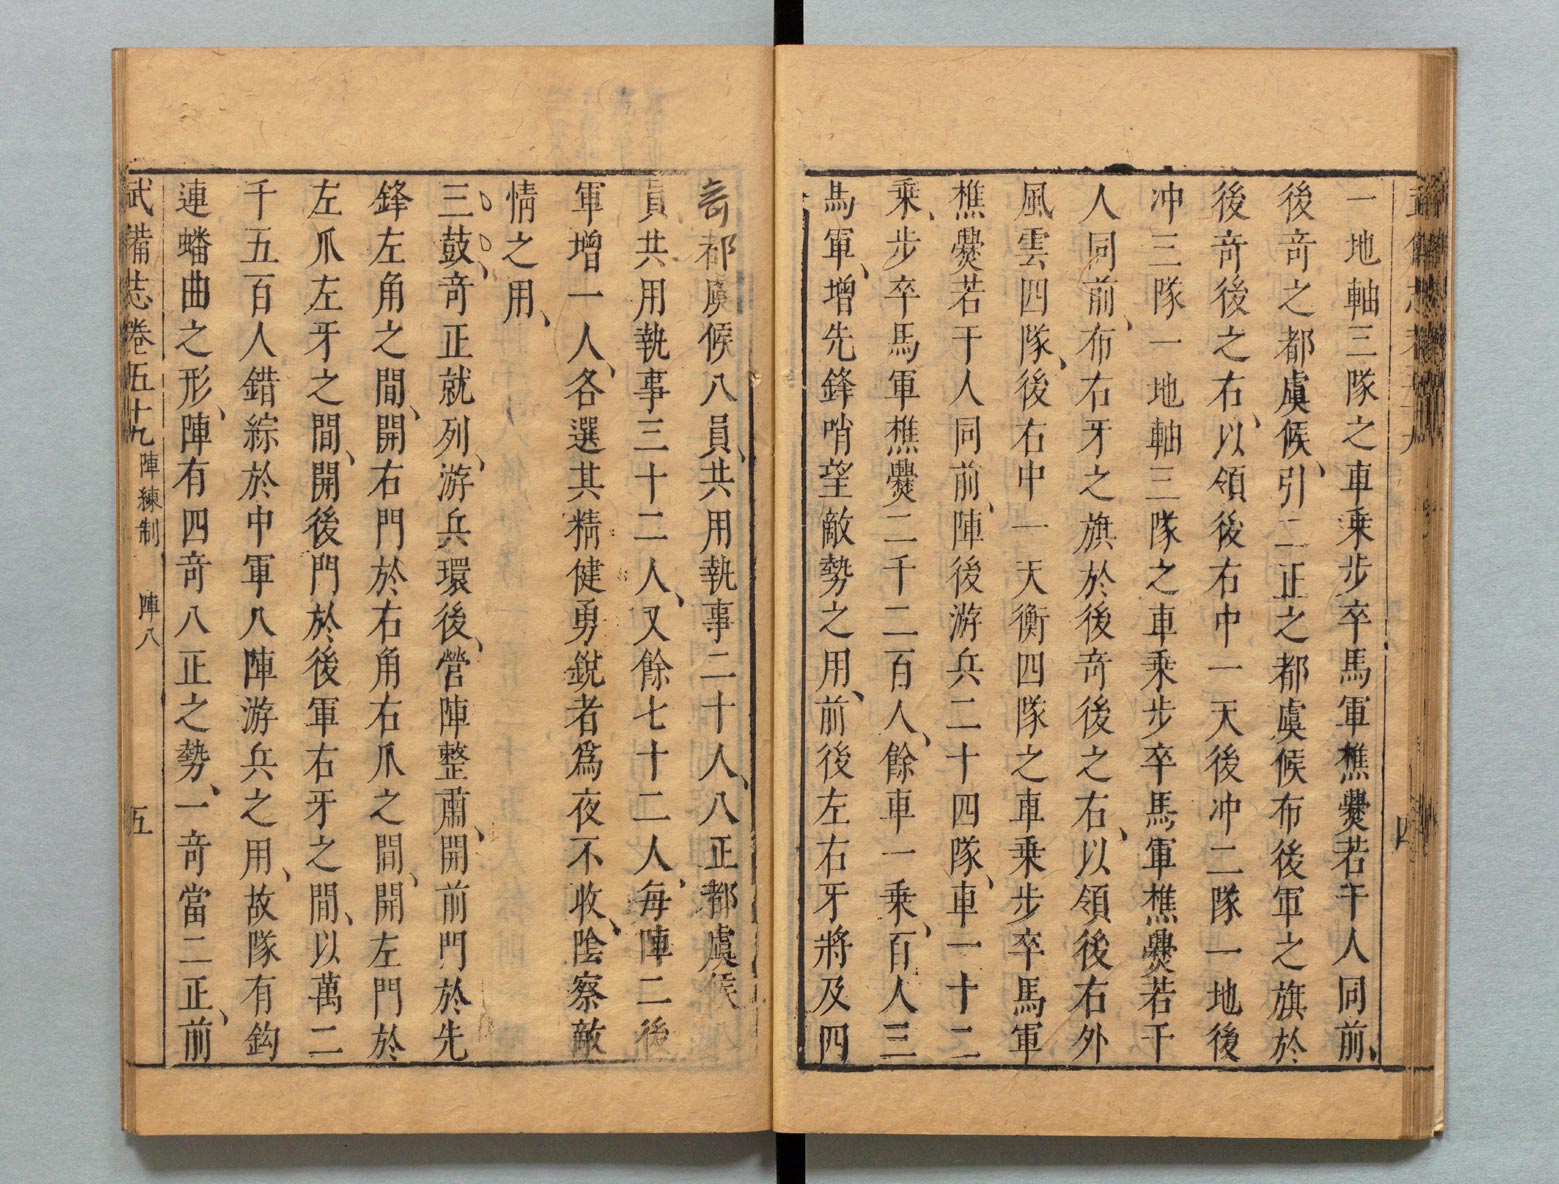 一地軸三隊之車乗步卒馬軍樵爨若干人同前、
後竒之都虞候、引二正之都虞候布後軍之旗於
後竒後之右、以領後右中一天後冲二隊一地後
冲三隊一地軸三隊之車乗步卒馬軍樵爨若干
人同前、布右牙之旗於後竒後之右、以領後右外
風雲四隊、後右中一天衡四隊之車乗步卒馬軍
樵爨若干人同前、陣後游兵二十四隊、車一十二
乗、步卒馬軍樵爨二千二百人、餘車一乗、百人三
馬軍、增先鋒哨望敵勢之用、前後左右牙將及四
竒都虞候八員、共用執事二十人、八正都虞候八
員共用執事三十二人、又餘七十二人、每陣二後
軍增一人、各選其精健勇銳者爲夜不收、陰察敵
情之用、
三鼓、竒正就列、游兵環後、營陣整肅、開前門於先
鋒左角之間、開右門於右角右爪之間、開左門於
左爪左牙之間、開後門於後軍右牙之間、以萬二
千五百人錯綜於中軍八陣游兵之用、故隊有鈎
連蟠曲之形、陣有四竒八正之勢、一竒當二正、前
武備志卷五十九 陣練制 陣八 五